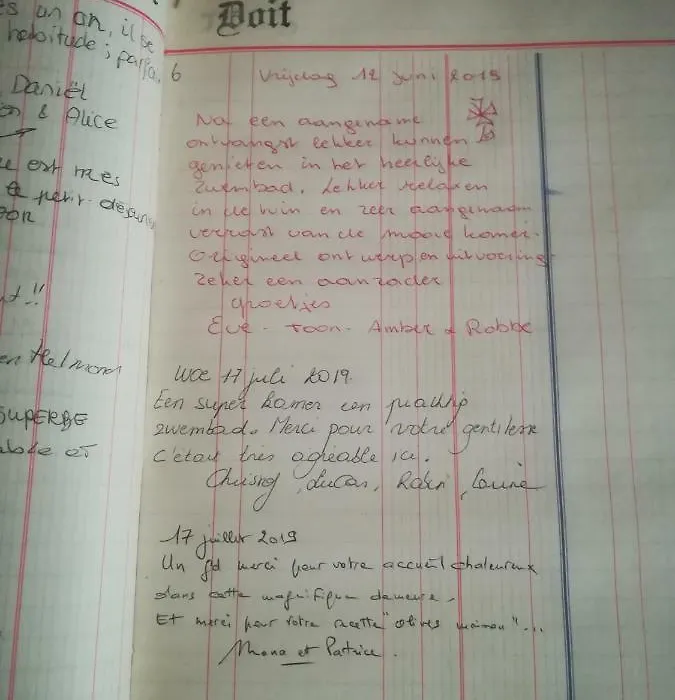 es un an, il se
habitude ; parfa.
Daniël
& Alice
e est très
petit-déjeun
t !!
en Helmond
SUPERBE
et
Doit
6
Vrijdag 12 juni 2015
Na een aangename
ontvangst lekker kunnen
genieten in het heerlijke
zwembad. Lekker relaxen
in de tuin en zeer aangenaam
verrast van de mooie kamer.
Origineel ontwerp en uitvoering
Zeker een aanrader
groetjes
Eve - Toon - Amber & Robbe
Woe 17 juli 2019.
Een super kamer een prachtig
zwembad. Merci pour votre gentillesse
c'était très agréable ici.
Lucas, Robin, Laurie
17 juillet 2019
Un gd merci pour votre accueil chaleureux
dans cette magnifique demeure.
Et merci pour votre recette "olives maison"...
Mona et Patrice.